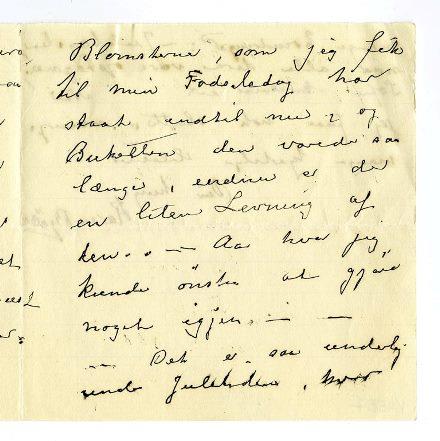 Blomsterne, som jeg fik
til min Fødselsdag har
staat indtil nu, og
Buketten den varede saa
længe, endnu er der
en liten Levning af
den. . — Aa hvor jeg
kunde ønske at gjøre
noget igjen. — —
— Det er saa underlig
unde Juletiden, hvor